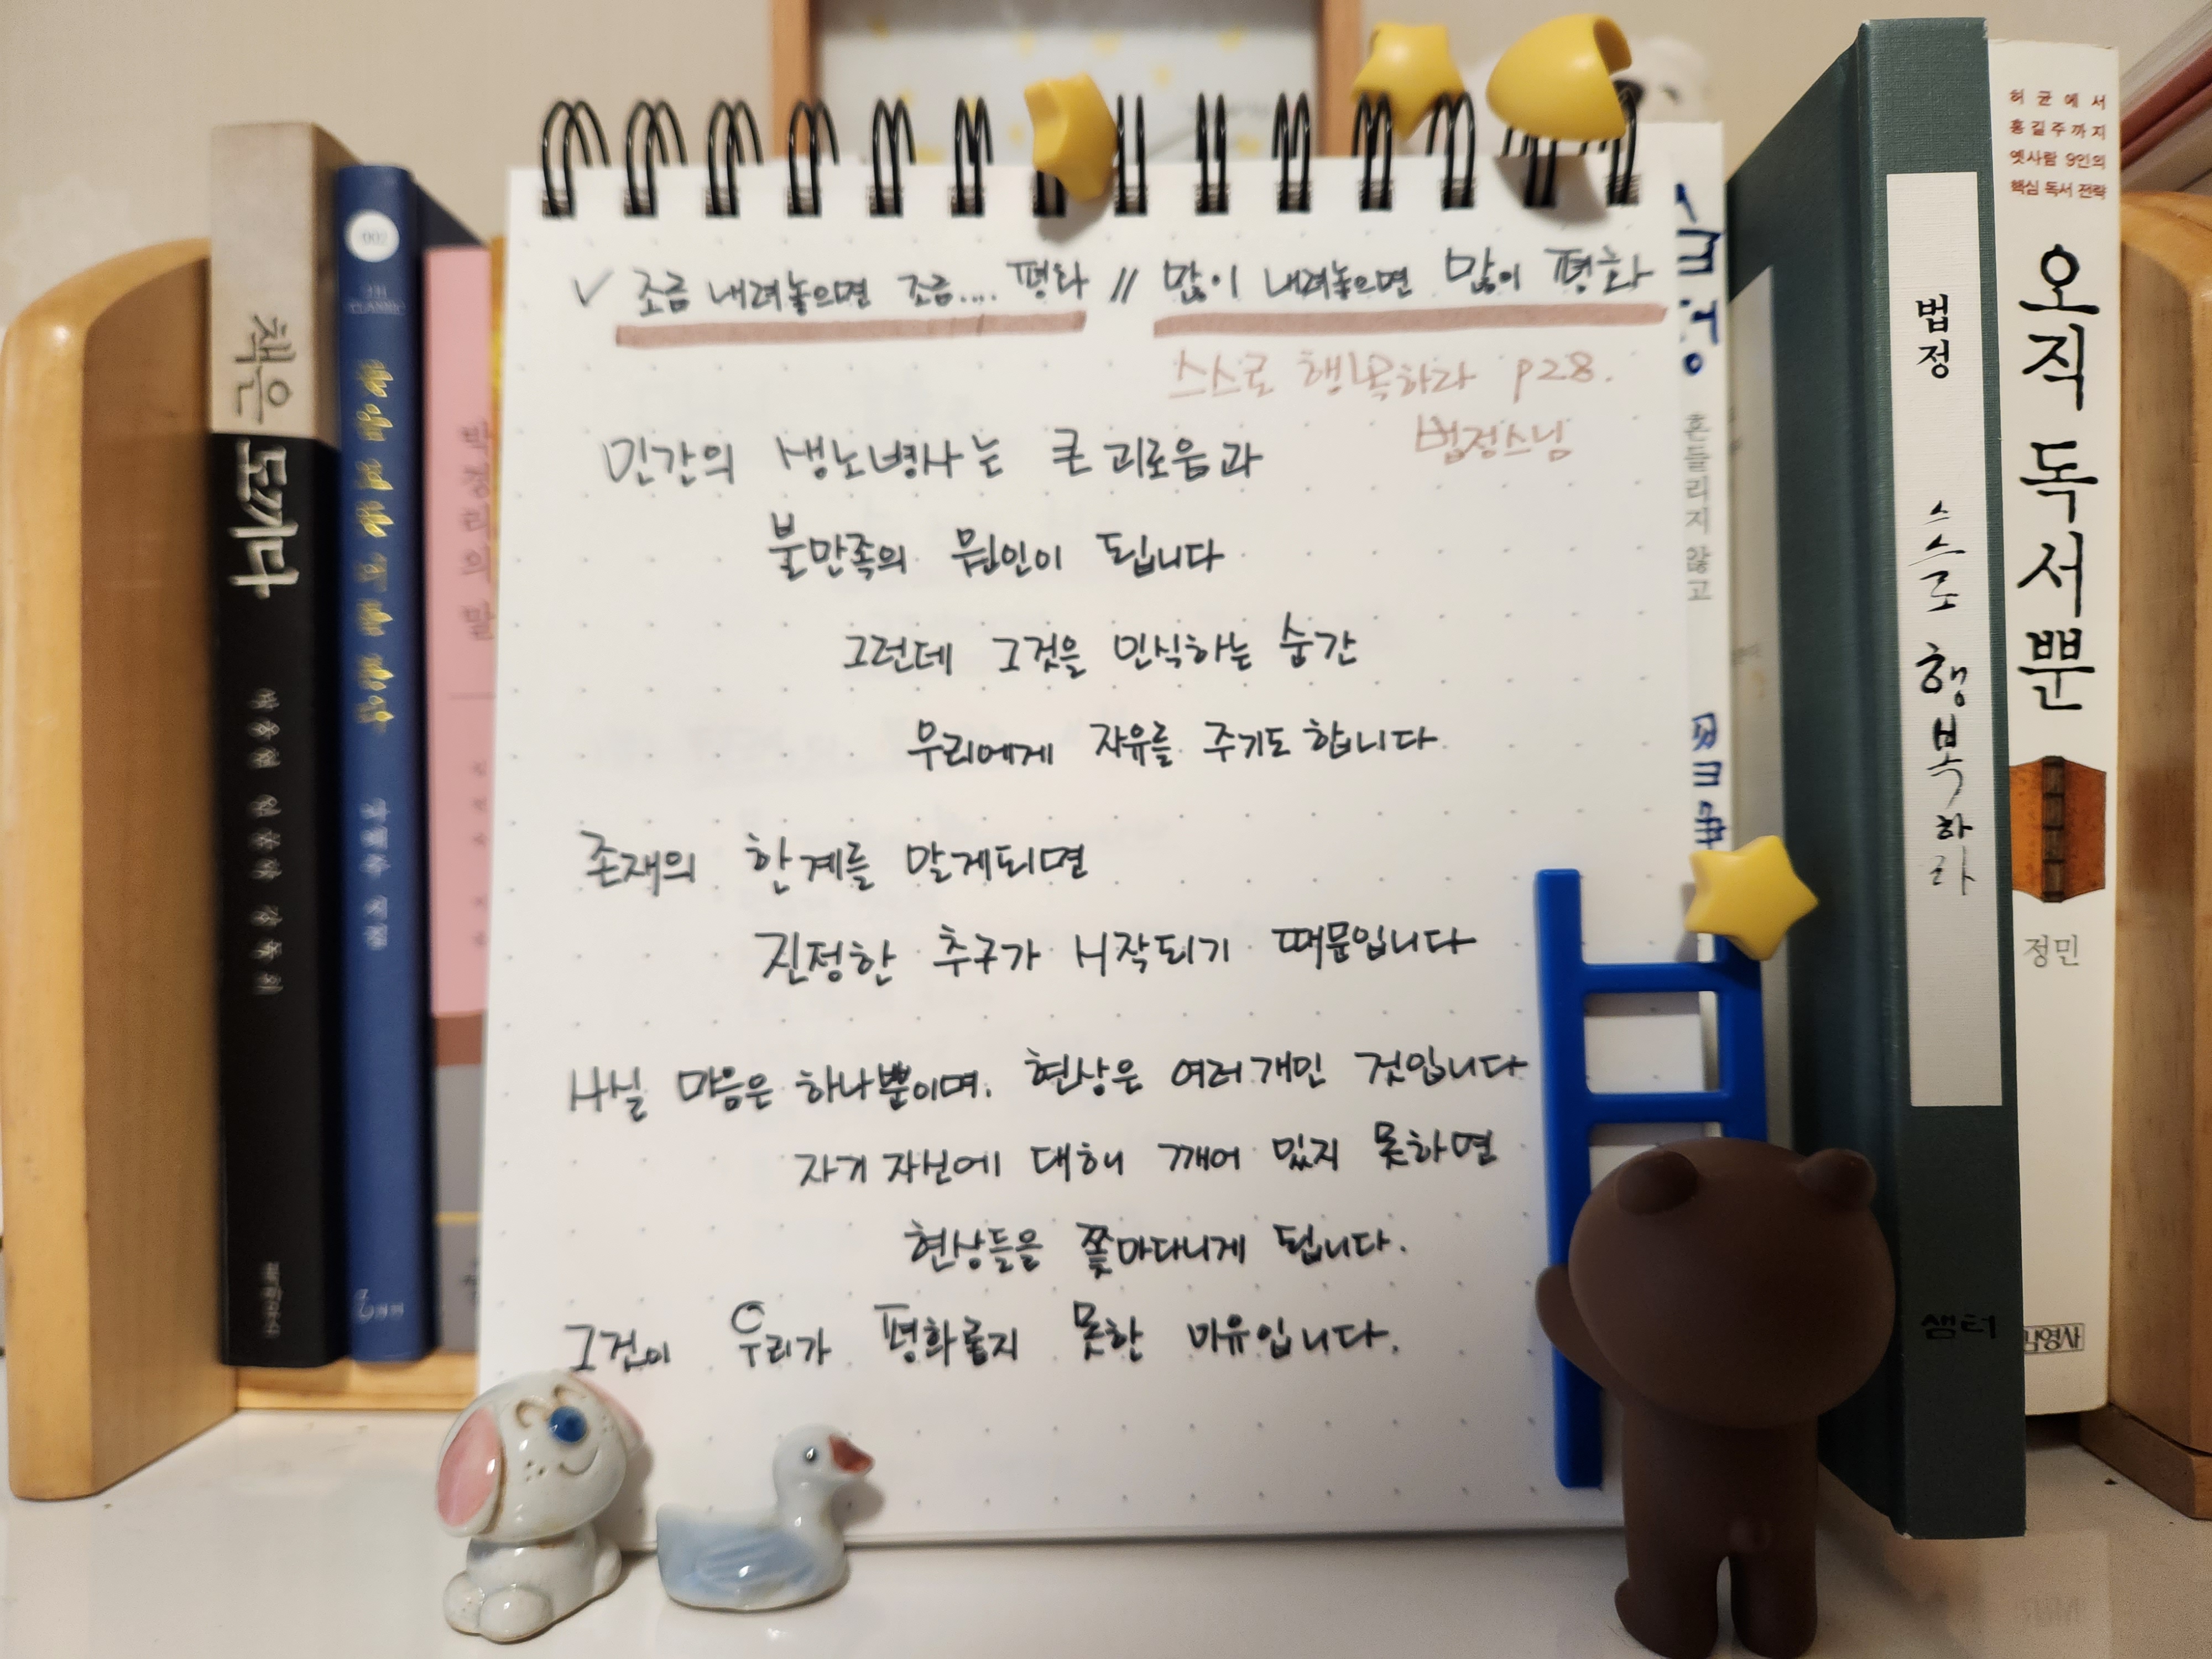 책은 도끼다
박웅현 인문학 강독회
북하우스
002
박경리의 말
✓ 조금 내려놓으면 조금.... 평화 // 많이 내려놓으면 많이 평화
스스로 행복하라 p28.
법정스님
인간의 생노병사는 큰 괴로움과
불만족의 원인이 됩니다
그런데 그것을 인식하는 순간
우리에게 자유를 주기도 합니다
존재의 한계를 알게되면
진정한 추구가 시작되기 때문입니다
사실 마음은 하나뿐이며. 현상은 여러개인 것입니다
자기 자신에 대해 깨어 있지 못하면
현상들을 쫓아다니게 됩니다.
그것이 우리가 평화롭지 못한 이유입니다.
흔들리지 않고
법정
스스로 행복하라
샘터
허균에서
홍길주까지
옛사람 9인의
핵심 독서 전략
오직 독서뿐
정민
김영사